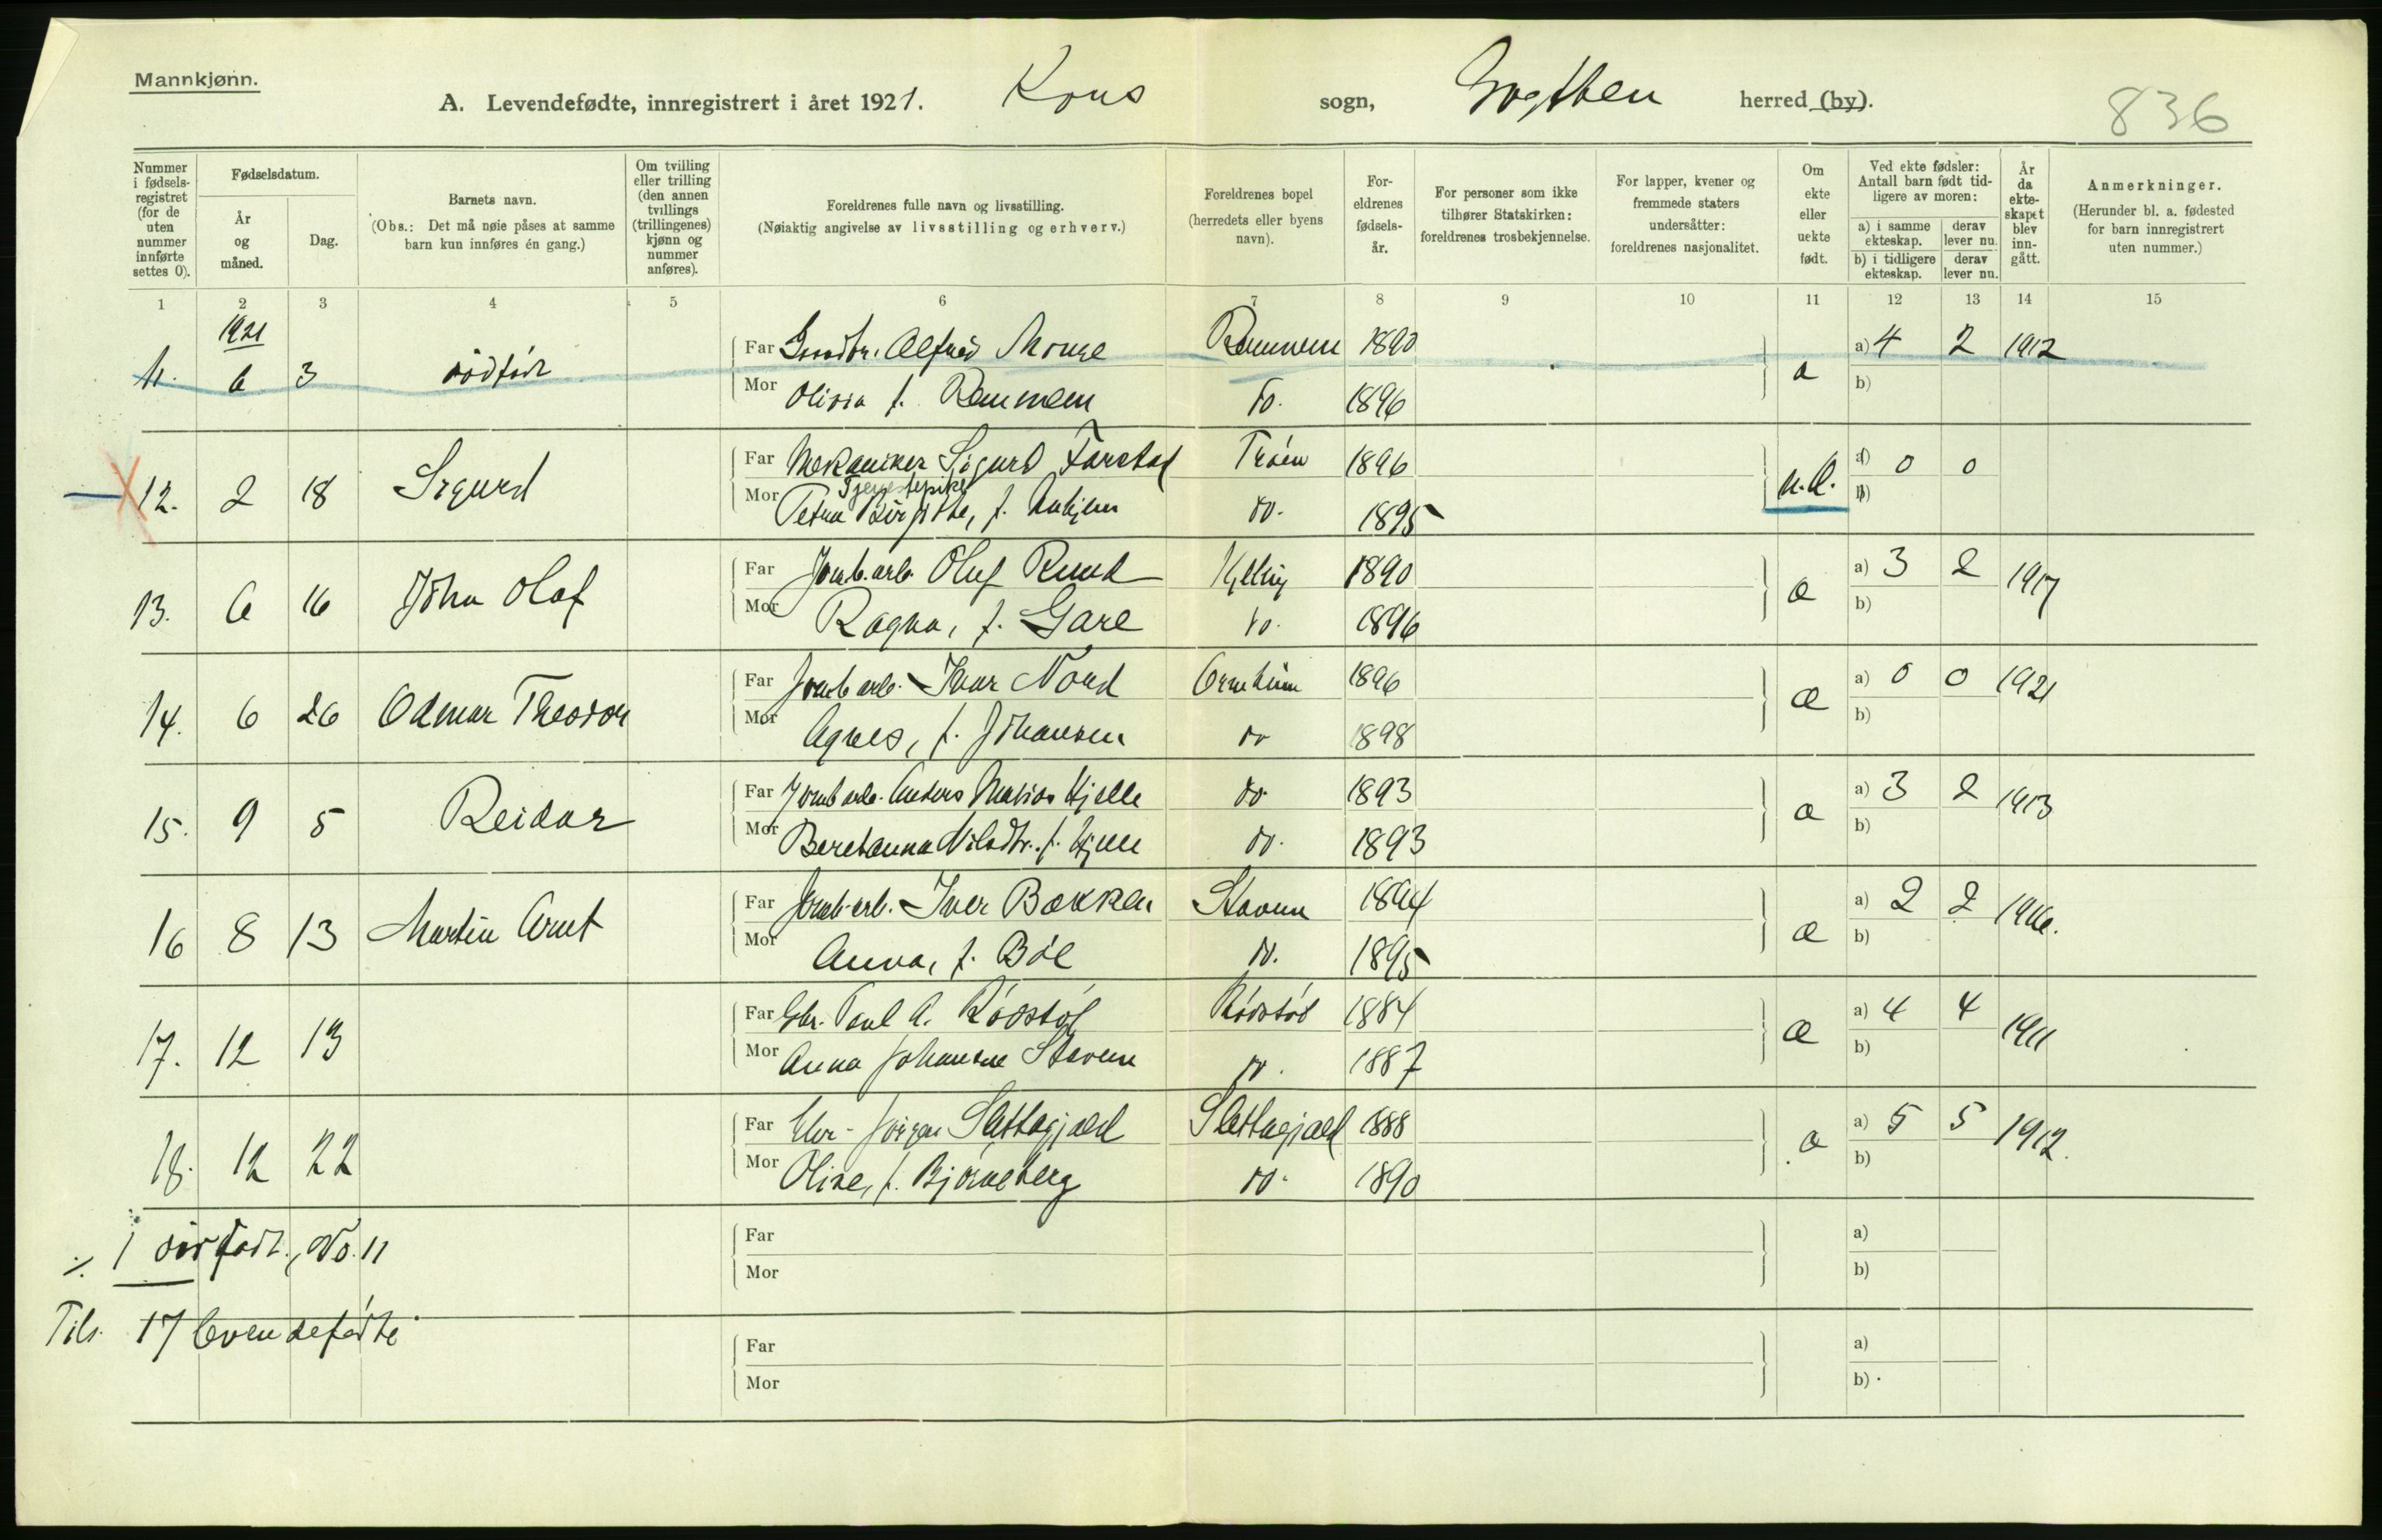 Mannkjønn.
A. Levendefødte, innregistrert i året 1921. Kors sogn, Grytten herred (by).
836
Nummer i fødsels-registret (for de uten nummer innførte settes 0).
Fødselsdatum.
År og måned.
Dag.
Barnets navn.
(Obs.: Det må nøie påses at samme barn kun innføres én gang.)
Om tvilling eller trilling (den annen tvillings (trillingenes) kjønn og nummer anføres).
Foreldrenes fulle navn og livsstilling.
(Nøiaktig angivelse av livsstilling og erhverv.)
Foreldrenes bopel (herredets eller byens navn).
For-eldrenes fødsels-år.
For personer som ikke tilhører Statskirken: foreldrenes trosbekjennelse.
For lapper, kvener og fremmede staters undersåtter: foreldrenes nasjonalitet.
Om ekte eller uekte født.
Ved ekte fødsler: Antall barn født tid-ligere av moren:
a) i samme ekteskap. derav lever nu.
b) i tidligere ekteskap. derav lever nu.
År da ekte-skapet blev inn-gått.
Anmerkninger.
(Herunder bl. a. fødested for barn innregistrert uten nummer.)
1 2 3 4 5 6 7 8 9 10 11 12 13 14 15
1921
11. 6 3 dødfødt Far Alfred Monge Remmem 1890 a) 4 2 1912
Mor Olivia f. Remmem do. 1896 æ b)
12. 2 18 Sigurd Far Mekaniker Sigurd Farstad Trøen 1896 u.æ. a) 0 0
Tjenestepike
Mor Petra Birgitte, f. do. 1895 b)
13. 6 16 John Olaf Far Jernb.arb. Oluf Ruud Kylling 1890 æ a) 3 2 1917
Mor Ragna, f. Gare do. 1896 b)
14. 6 26 Odmar Theodor Far Jernb.arb. Ivar Nord Ormheim 1896 æ a) 0 0 1921
Mor Agnes, f. Johansen do 1898 b)
15. 9 5 Reidar Far Jernb.arb. Anders Marius Hjelle do 1893 æ a) 3 2 1913
Mor Beretanna Nilsdtr. f. Hjelle do. 1893 b)
16 8 13 Martin Arnt Far Jernb.arb. Iver Bakken Stavem 1894 æ a) 2 2 1916.
Mor Anna, f. Böe do. 1895 b)
17. 12 13 Far Gbr. Paul A. Rödstöl Rödstöl 1884 æ a) 4 4 1911
Mor Anna Johansen Stavem do. 1887 b)
18. 12 22 Far Gbr. Jörgen Slettagjærd Slettagjærd 1888 æ a) 5 5 1912.
Mor Oline, f. Björneberg do. 1890 b)
÷ 1 dødfødt, No. 11 Far a)
Mor b)
Tils. 17 levendefødte Far a)
Mor b)